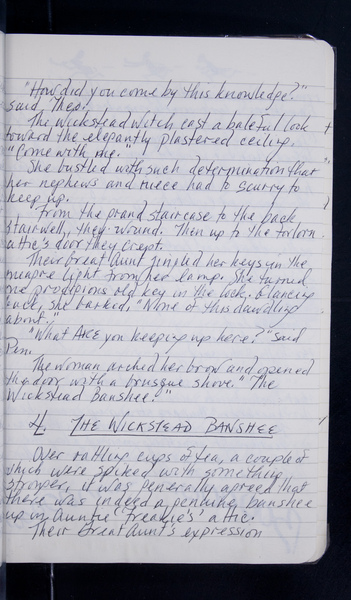 "How did you come by this knowledge?"
said, Theo.
The Wickstead Witch cast a baleful look
toward the elegantly plastered ceiling.
"Come with me."
She bustled with such determination that
her nephews and niece had to scurry to
keep up.
From the grand staircase to the back
stairwell, they wound. Then up to the forlorn
attic's door they crept.
Their great aunt jingled her keys in the
meagre light from her lamp. She turned
one prodigious old key in the lock, glancing
back, she barked, "None of this dawdling
about."
"What ARE you keeping up here?" said
Pem.
The woman arched her brow and opened
the door with a brusque shove. "The
Wickstead Banshee."
4. THE WICKSTEAD BANSHEE
Over rattling cups of tea, a couple of
which were spiked with something
stronger, it was generally agreed that
there was indeed a genuine banshee
up in Auntie 'Freakie's' attic.
Their Great Aunt's expression